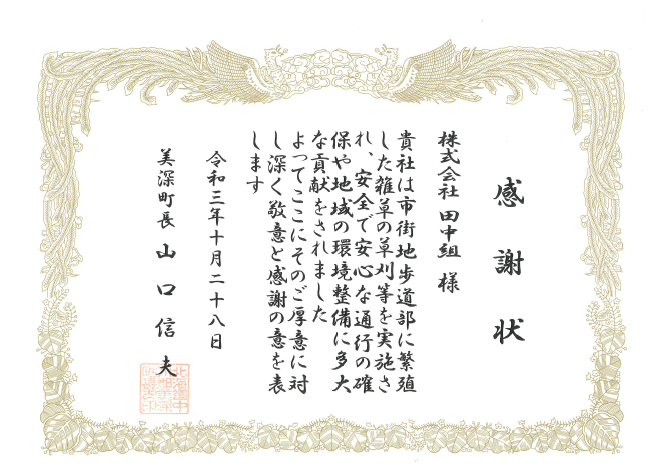 感謝状
株式会社 田中組 様
貴社は市街地歩道部に繁殖
した雑草の草刈等を実施さ
れ、安全で安心な通行の確
保や地域の環境整備に多大
な貢献をされました
よってここにそのご厚意に対
し深く敬意と感謝の意を表
します
令和三年十月二十八日
美深町長 山口信夫